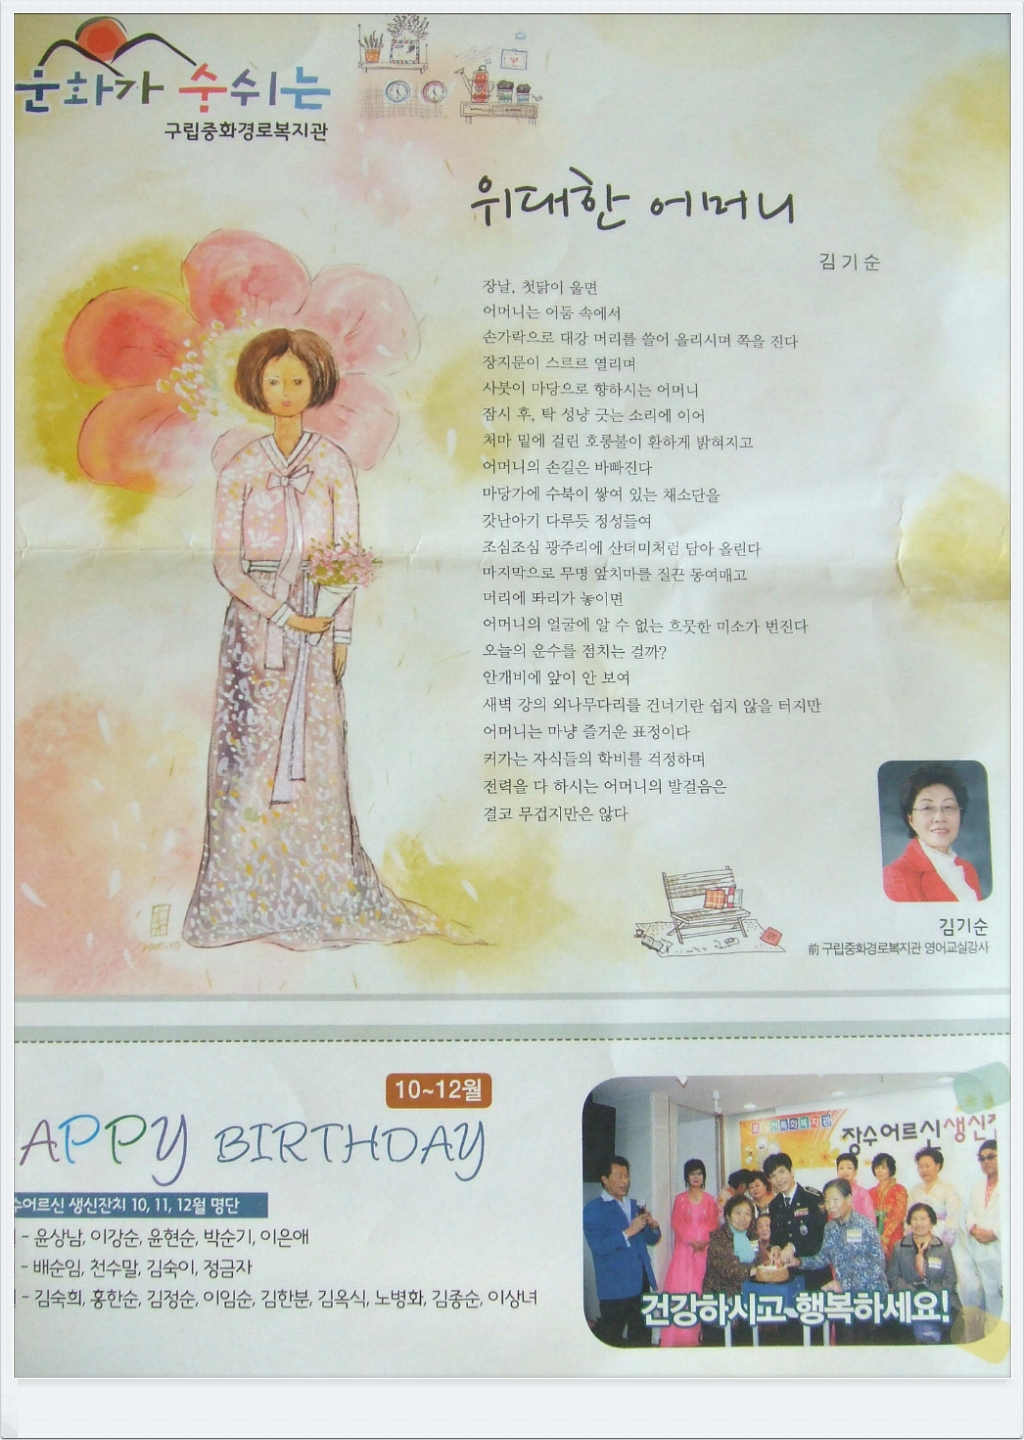 문화가 숨쉬는
구립중화경로복지관
위대한 어머니
김기순
장날, 첫닭이 울면
어머니는 어둠 속에서
손가락으로 대강 머리를 쓸어 올리시며 쪽을 진다
장지문이 스르르 열리며
사붓이 마당으로 향하시는 어머니
잠시 후, 탁 성냥 긋는 소리에 이어
처마 밑에 걸린 호롱불이 환하게 밝혀지고
어머니의 손길은 바빠진다
마당가에 수북이 쌓여 있는 채소단을
갓난아기 다루듯 정성들여
조심조심 광주리에 산더미처럼 담아 올린다
마지막으로 무명 앞치마를 질끈 동여매고
머리에 똬리가 놓이면
어머니의 얼굴에 알 수 없는 흐뭇한 미소가 번진다
오늘의 운수를 점치는 걸까?
안개비에 앞이 안 보여
새벽 강의 외나무다리를 건너기란 쉽지 않을 터지만
어머니는 마냥 즐거운 표정이다
커가는 자식들의 학비를 걱정하며
전력을 다 하시는 어머니의 발걸음은
결코 무겁지만은 않다
김기순
前 구립중화경로복지관 영어교실강사
10~12월
APPY BIRTHDAY
수어르신 생신잔치 10, 11, 12월 명단
- 윤상남, 이강순, 윤현순, 박순기, 이은애
- 배순임, 천수말, 김숙이, 정금자
- 김숙희, 홍한순, 김정순, 이임순, 김한분, 김옥식, 노병화, 김종순, 이상녀
장수어르신생신
건강하시고 행복하세요!